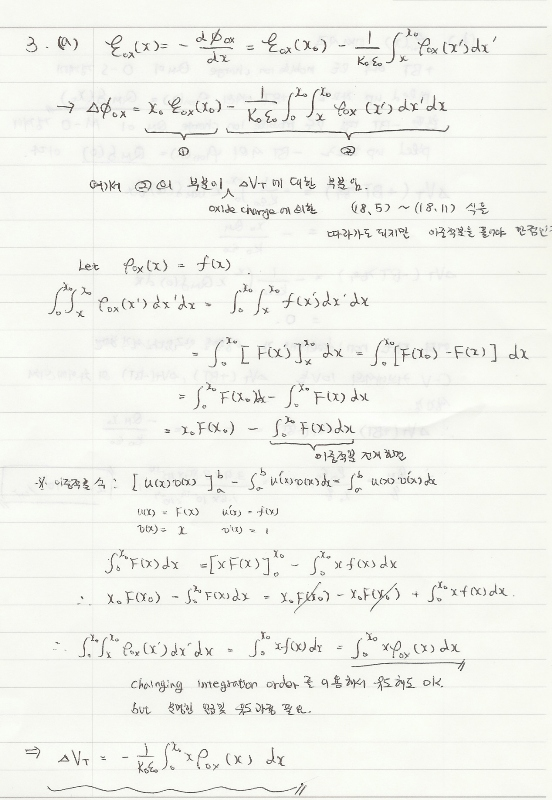 3. (a) ℰox(x) = - dϕox/dx = ℰox(x₀) - 1/(K₀ε₀) ∫ₓ^x₀ ρox(x')dx'
→ Δϕox = x₀ ℰox(x₀) - 1/(K₀ε₀) ∫₀^x₀ ∫ₓ^x₀ ρox(x')dx'dx
① ②
여기서 ②의 부분이 ΔVT에 대한 부분임.
oxide charge에 의한 (18.5) ~ (18.11) 식을
따라가도 되지만 이중적분을 풀어야
Let ρox(x) = f(x).
∫₀^x₀ ∫ₓ^x₀ ρox(x')dx'dx = ∫₀^x₀ ∫ₓ^x₀ f(x')dx'dx
= ∫₀^x₀ [F(x')]ₓ^x₀ dx = ∫₀^x₀ [F(x₀) - F(x)] dx
= ∫₀^x₀ F(x₀)dx - ∫₀^x₀ F(x)dx
= x₀F(x₀) - ∫₀^x₀ F(x)dx
전개하면
[u(x)v(x)]ₐ^b - ∫ₐ^b u'(x)v(x)dx = ∫ₐ^b u(x)v'(x)dx
u(x) = F(x) u'(x) = f(x)
v(x) = x v'(x) = 1
∫₀^x₀ F(x)dx = [xF(x)]₀^x₀ - ∫₀^x₀ xf(x)dx
∴ x₀F(x₀) - ∫₀^x₀ F(x)dx = x₀F(x₀) - x₀F(x₀) + ∫₀^x₀ xf(x)dx.
∴ ∫₀^x₀ ∫ₓ^x₀ ρox(x')dx'dx = ∫₀^x₀ xf(x)dx = ∫₀^x₀ xρox(x)dx
changing integration order를 이용해서 유도해도 OK.
but 유도과정 필요.
⇒ ΔVT = - 1/(K₀ε₀) ∫₀^x₀ xρox(x) dx